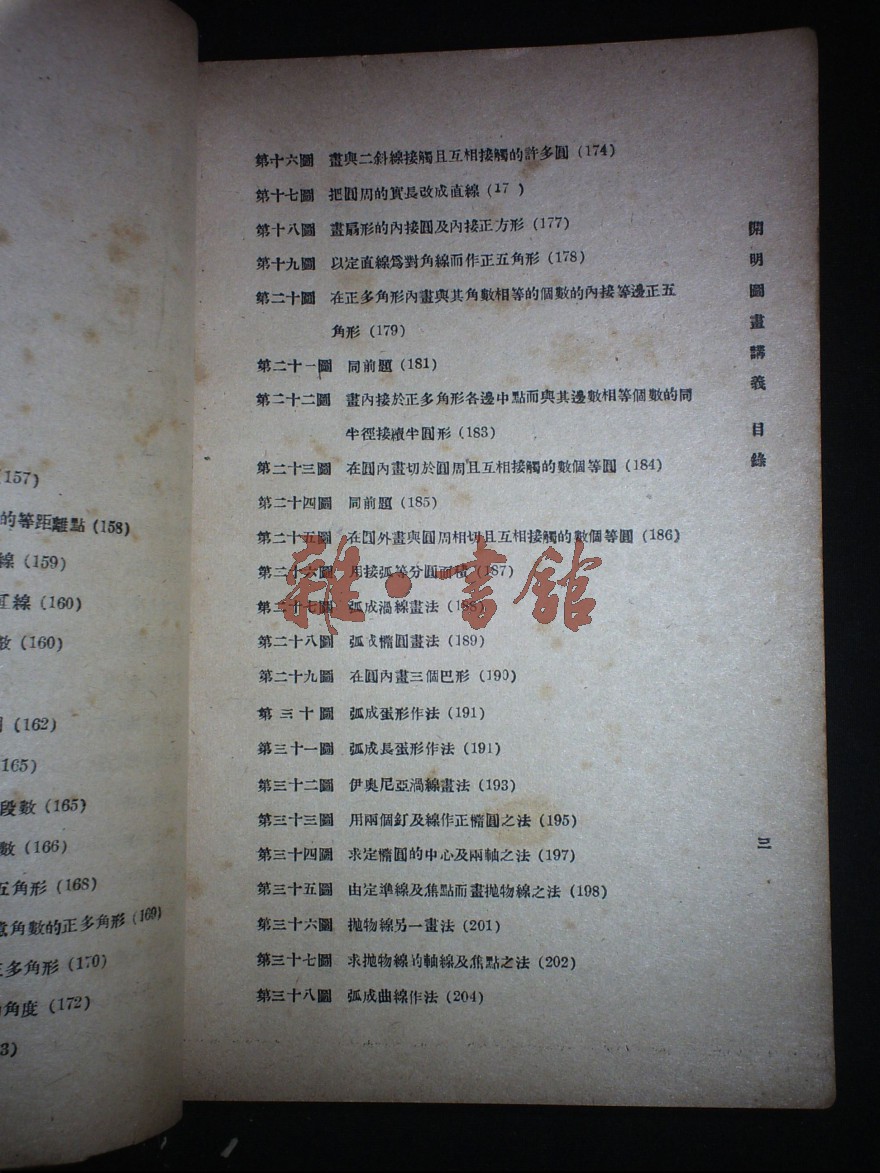 第十六圖　畫與二斜線接觸且互相接觸的許多圓(174)
第十七圖　把圓周的實長改成直線(17 )
第十八圖　畫扇形的內接圓及內接正方形(177)
第十九圖　以定直線爲對角線而作正五角形(178)
第二十圖　在正多角形內畫與其角數相等的個數的內接等邊正五
角形(179)
第二十一圖　同前題(181)
第二十二圖　畫內接於正多角形各邊中點而與其邊數相等個數的同
半徑接續半圓形(183)
第二十三圖　在圓內畫切於圓周且互相接觸的數個等圓(184)
第二十四圖　同前題(185)
第二十五圖　在圓外畫與圓周相切且互相接觸的數個等圓(186)
第二十六圖　用接弧等分圓面積(187)
第二十七圖　弧成渦線畫法(188)
第二十八圖　弧成橢圓畫法(189)
第二十九圖　在圓內畫三個巴形(190)
第三十圖　弧成蛋形作法(191)
第三十一圖　弧成長蛋形作法(191)
第三十二圖　伊奧尼亞渦線畫法(193)
第三十三圖　用兩個釘及線作正橢圓之法(195)
第三十四圖　求定橢圓的中心及兩軸之法(197)
第三十五圖　由定準線及焦點而畫拋物線之法(198)
第三十六圖　拋物線另一畫法(201)
第三十七圖　求拋物線的軸線及焦點之法(202)
第三十八圖　弧成曲線作法(204)
開明圖畫講義　目錄
三
(157)
的等距離點(158)
線(159)
線(160)
數(160)
(162)
165)
段數(165)
數(166)
五角形(168)
角數的正多角形(169)
多角形(170)
角度(172)
3)
雜·書舘